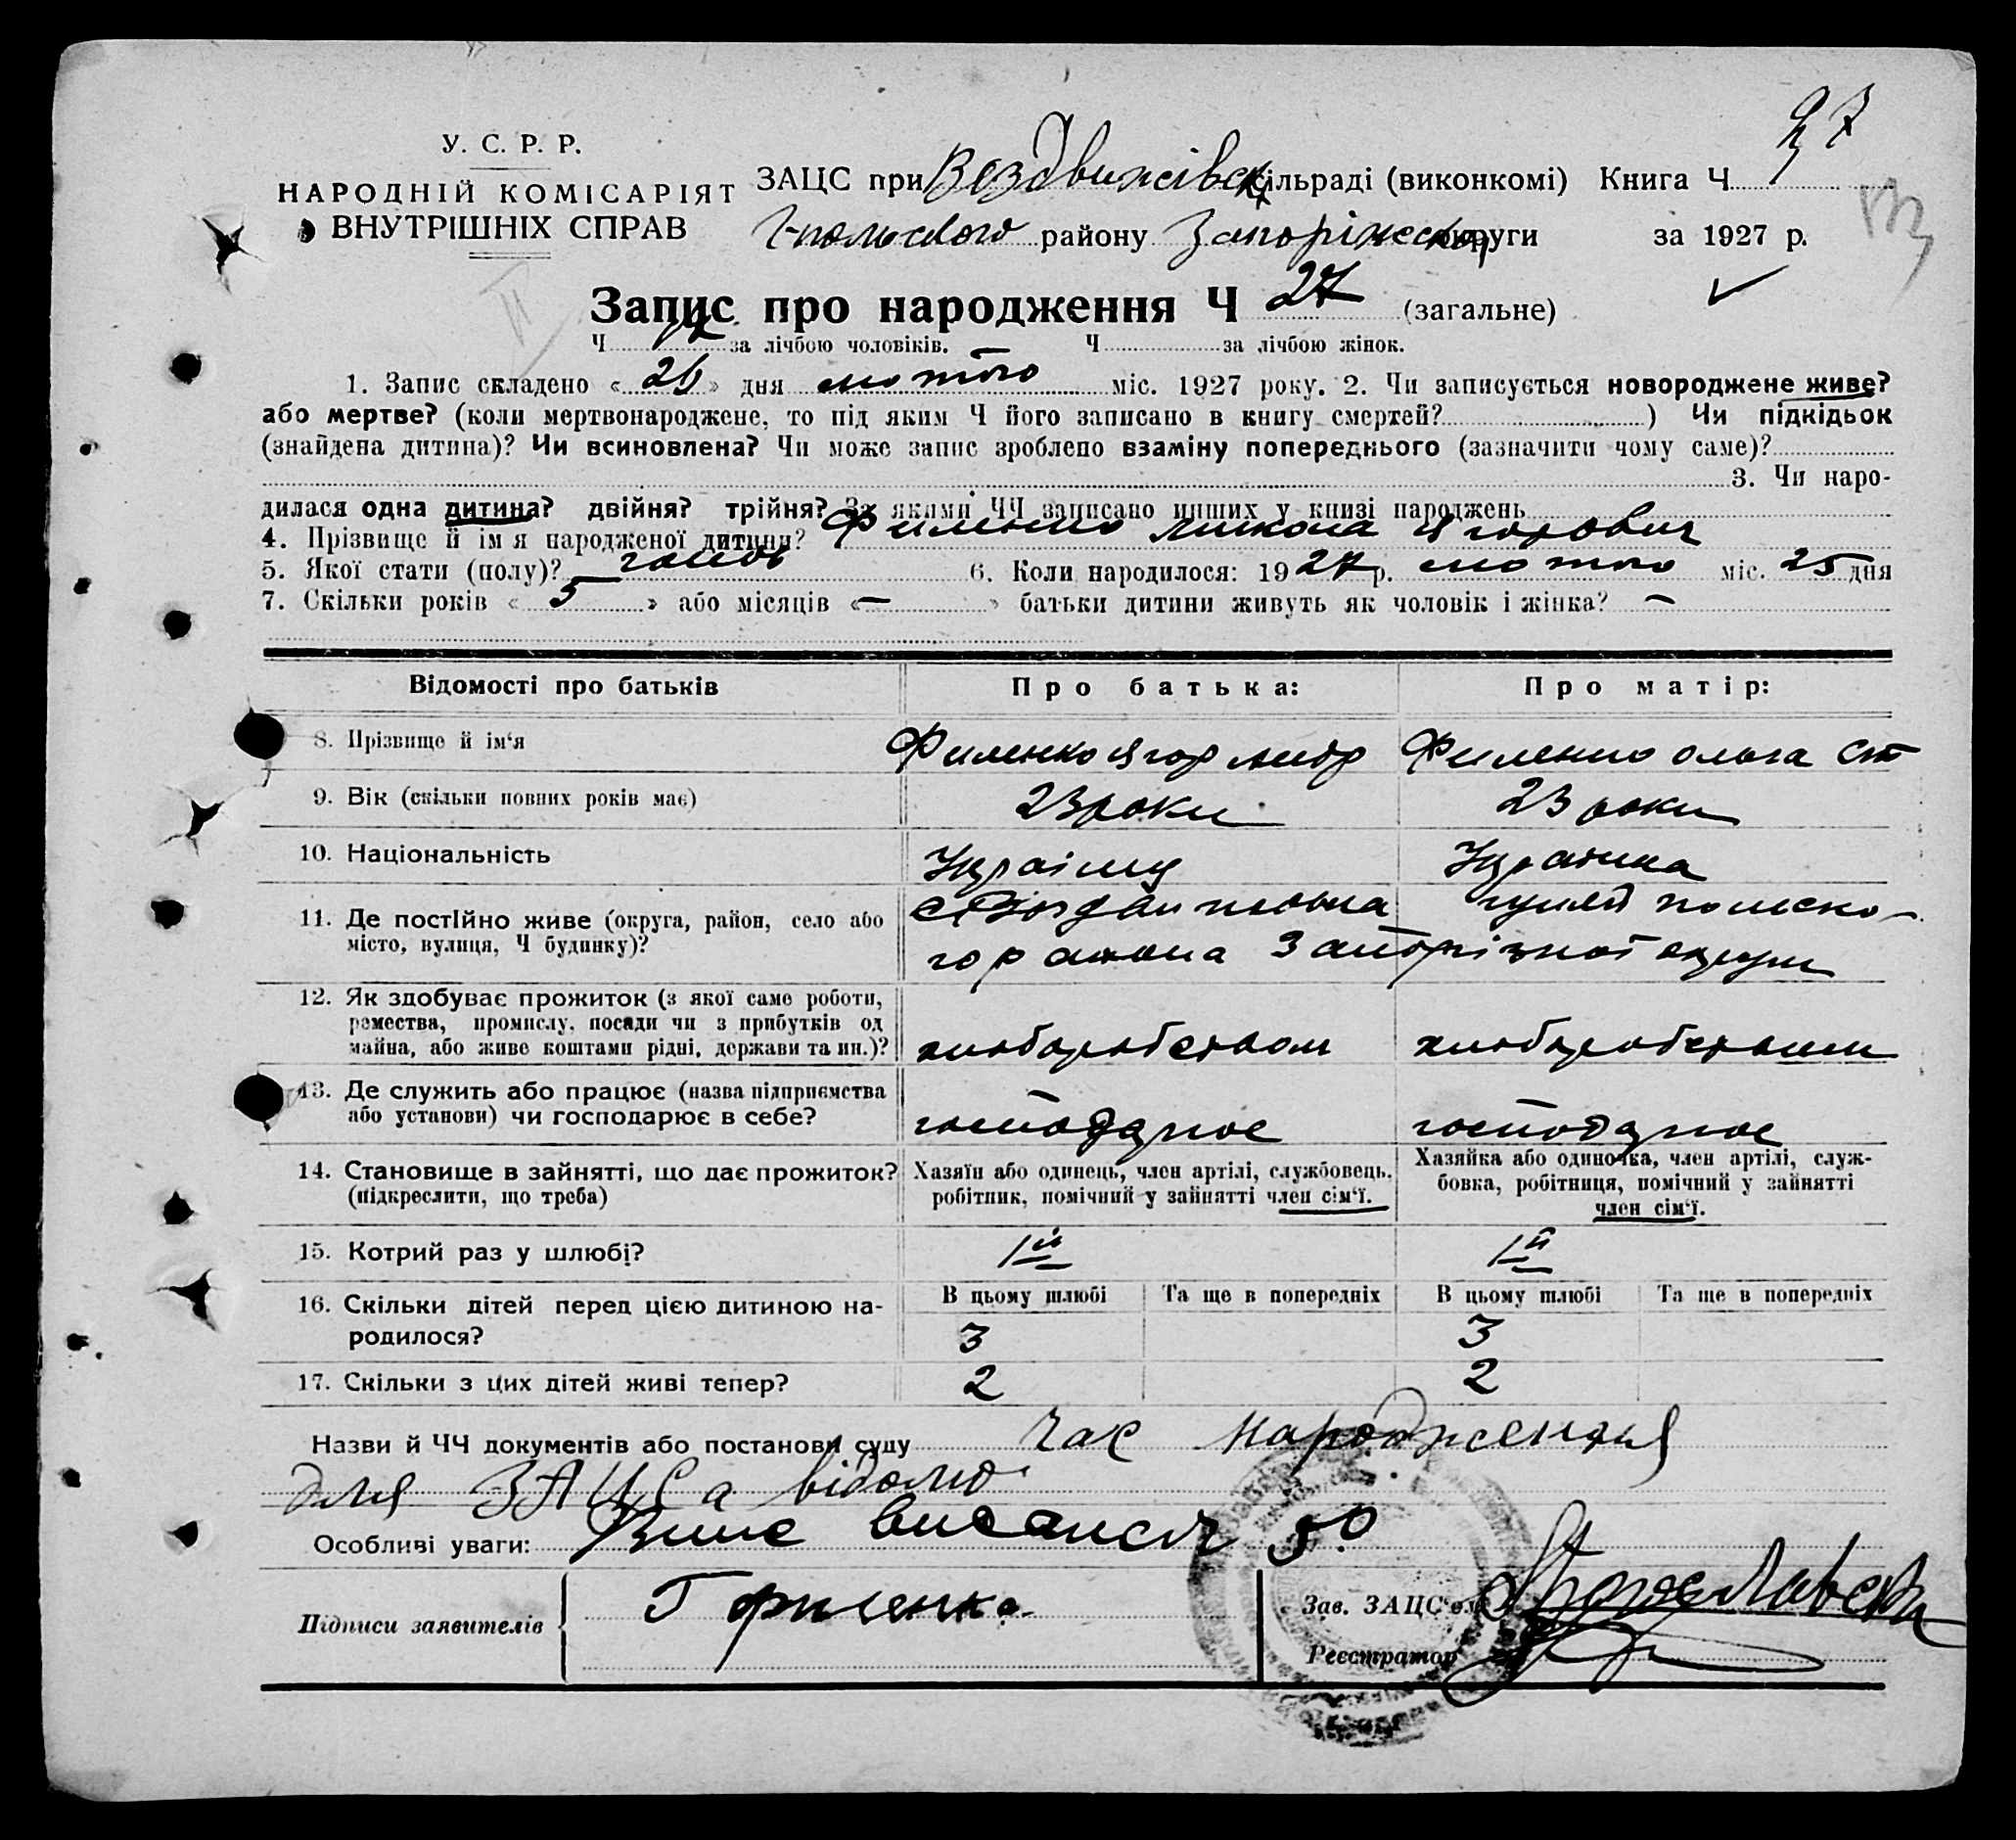 У. С. Р. Р.
НАРОДНІЙ КОМІСАРІЯТ
ВНУТРІШНІХ СПРАВ
ЗАЦС при Воздвижівск сільраді (виконкомі) Книга Ч
району Запоріжської округи за 1927 р.
Запис про народження Ч 27 (загальне)
Ч за лічбою чоловіків. Ч за лічбою жінок.
1. Запис складено « » дня лютого міс. 1927 року. 2. Чи записується новороджене живе?
або мертве? (коли мертвонароджене, то під яким Ч його записано в книгу смертей? ) Чи підкідьок
(знайдена дитина)? Чи всиновлена? Чи може запис зроблено взаміну попереднього (зазначити чому саме)?
3. Чи наро-
дилася одна дитина? двійня? трійня? За якими ЧЧ записано инших у книзі народжень
4. Прізвище й ім я народженої дитини? Филенко Микола Ягорович
5. Якої стати (полу)? 6. Коли народилося: 1927 р. лютого міс. 25 дня
7. Скільки років « 5 » або місяців «—» батьки дитини живуть як чоловік і жінка? —
Відомості про батьків Про батька: Про матір:
8. Прізвище й ім‘я Филенко Ягор Филенко Ольга Ст
9. Вік (скільки повних років має) 23 роки 23 роки
10. Національність Українц Українка
11. Де постійно живе (округа, район, село або
місто, вулиця, Ч будинку)? гуляй польско-
го району Запорізкої округи
12. Як здобуває прожиток (з якої саме роботи,
ремества, промислу, посади чи з прибутків од
майна, або живе коштами рідні, держави та ин.)? хлюборобством хлюборобством
13. Де служить або працює (назва підприємства
або установи) чи господарює в себе? господарює господарює
14. Становище в зайнятті, що дає прожиток?
(підкреслити, що треба)
Хазяїн або одинець, член артілі, службовець,
робітник, помічний у зайнятті член сім‘ї.
Хазяйка або одиночка, член артілі, служ-
бовка, робітниця, помічний у зайнятті
член сім‘ї.
15. Котрий раз у шлюбі? 1й 1й
16. Скільки дітей перед цією дитиною на-
родилося?
В цьому шлюбі Та ще в попередніх В цьому шлюбі Та ще в попередніх
3 3
17. Скільки з цих дітей живі тепер? 2 2
Назви й ЧЧ документів або постанови суду Час народження
для ЗАЦСа відомо
Особливі уваги:
Підписи заявителів
Зав. ЗАЦС‘ом
Реєстратор